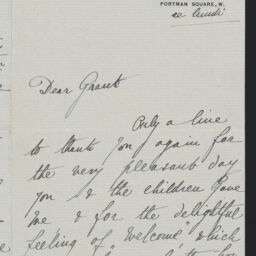 PORTMAN SQUARE, W.
ce lundi
Dear Grant
Only a line
to thank you again for
the very pleasant day
you & the children gave
me & for the delightful
feeling of "welcome" which